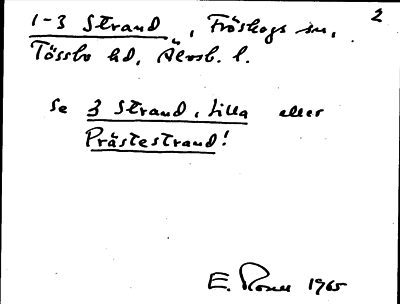 2
1-3 Strand „, Fröskogs sn,
Tössbo hd, Älvsb. l.
Se 3 Strand, Lilla eller
Prästestrand!
E. 1965